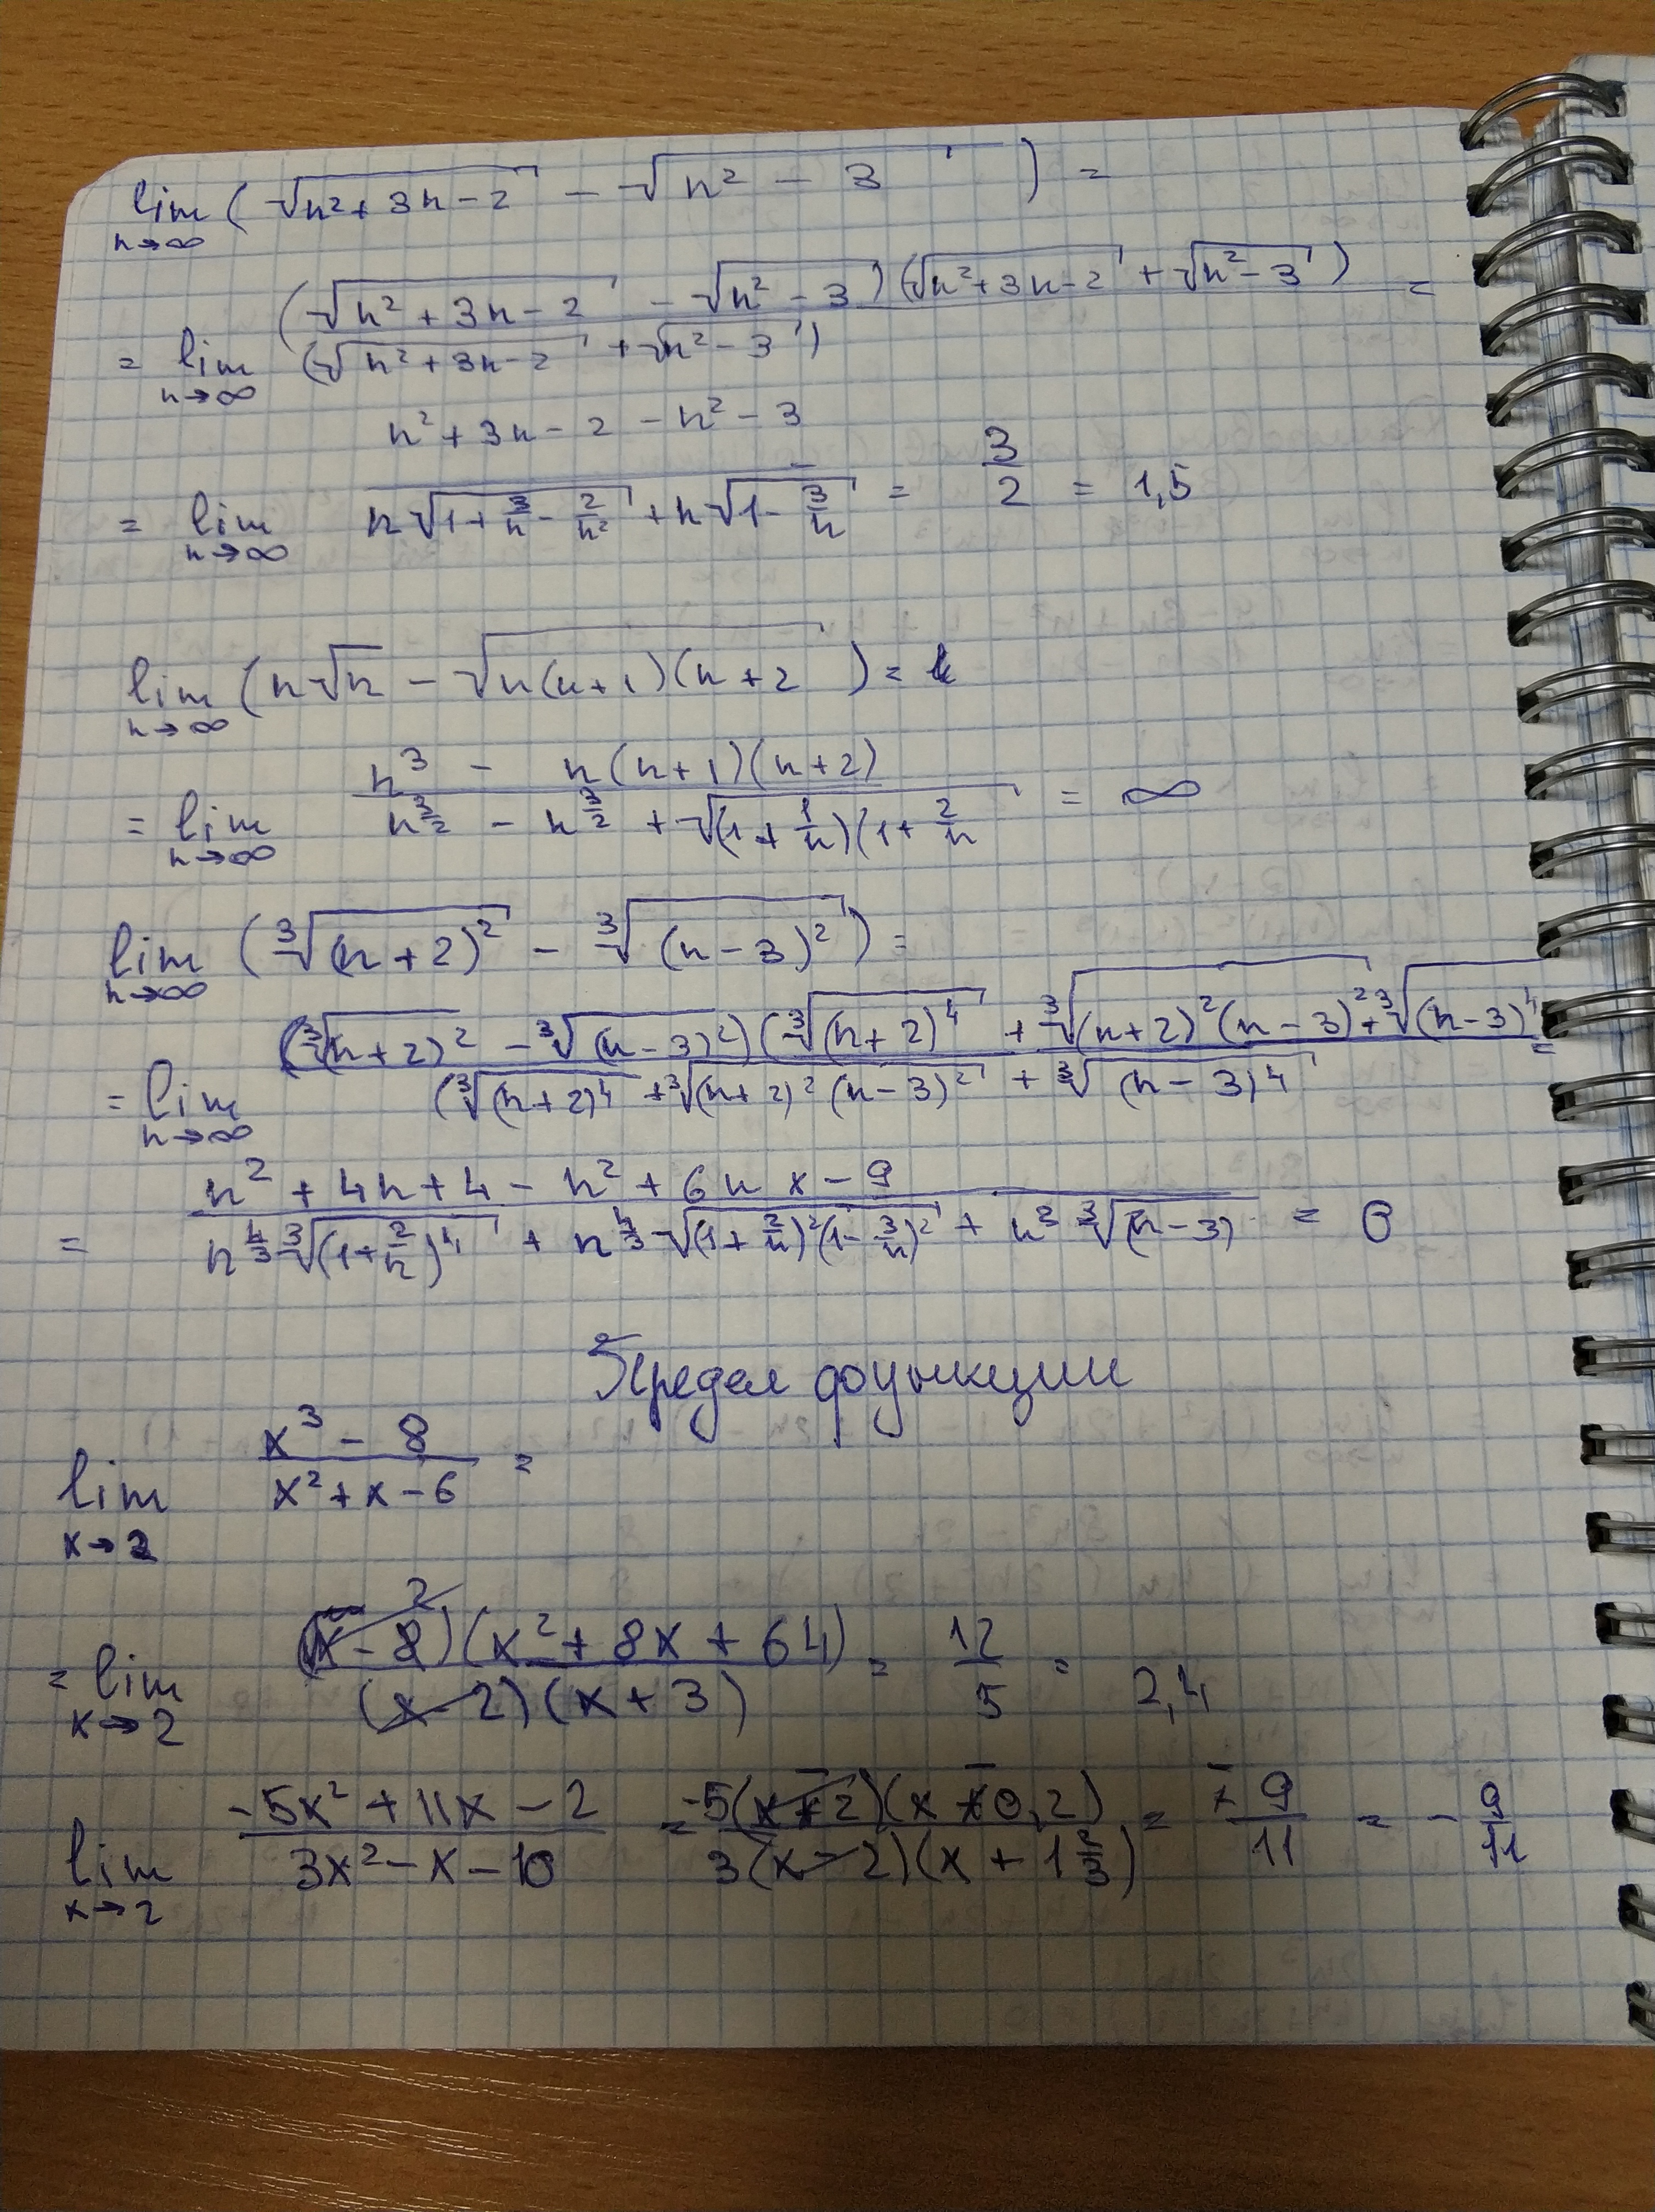 lim (√(n²+3n-2) - √(n² - 3)) =
n→∞
(√(n²+3n-2) - √(n²-3))(√(n²+3n-2) + √(n²-3)) =
= lim (√(n²+3n-2) + √(n²-3))
n→∞
n²+3n-2-n²-3
= lim n√(1+3/n-2/n²) + n√(1-3/n) = 3/2 = 1,5
n→∞
lim (n√n - √(n(n+1)(n+2)) =
n→∞
n³ - n(n+1)(n+2)
= lim n^(3/2) - n^(3/2) + √((1+1/n)(1+2/n) = ∞
n→∞
lim (³√(n+2)² - ³√(n-3)²) =
n→∞
(³√(n+2)² - ³√(n-3)²)(³√(n+2)⁴ + ³√(n+2)²(n-3)² + ³√(n-3)⁴ =
= lim (³√(n+2)⁴ + ³√(n+2)²(n-3)² + ³√(n-3)⁴
n→∞
n²+4n+4-n²+6n-9
= n^(4/3) ³√(1+2/n)⁴ + n^(4/3) √(1+2/n)²(1-3/n)² + n³ ³√(n-3) = 0
Предел функции
x³-8
lim x²+x-6 =
x→2
(x-2)(x²+8x+64)
= lim (x-2)(x+3) = 12/5 = 2,4
x→2
-5x²+11x-2 = -5(x-2)(x-0,2) = -9/11 = -9/11
lim 3x²-x-10 3(x-2)(x+1 2/3)
x→2